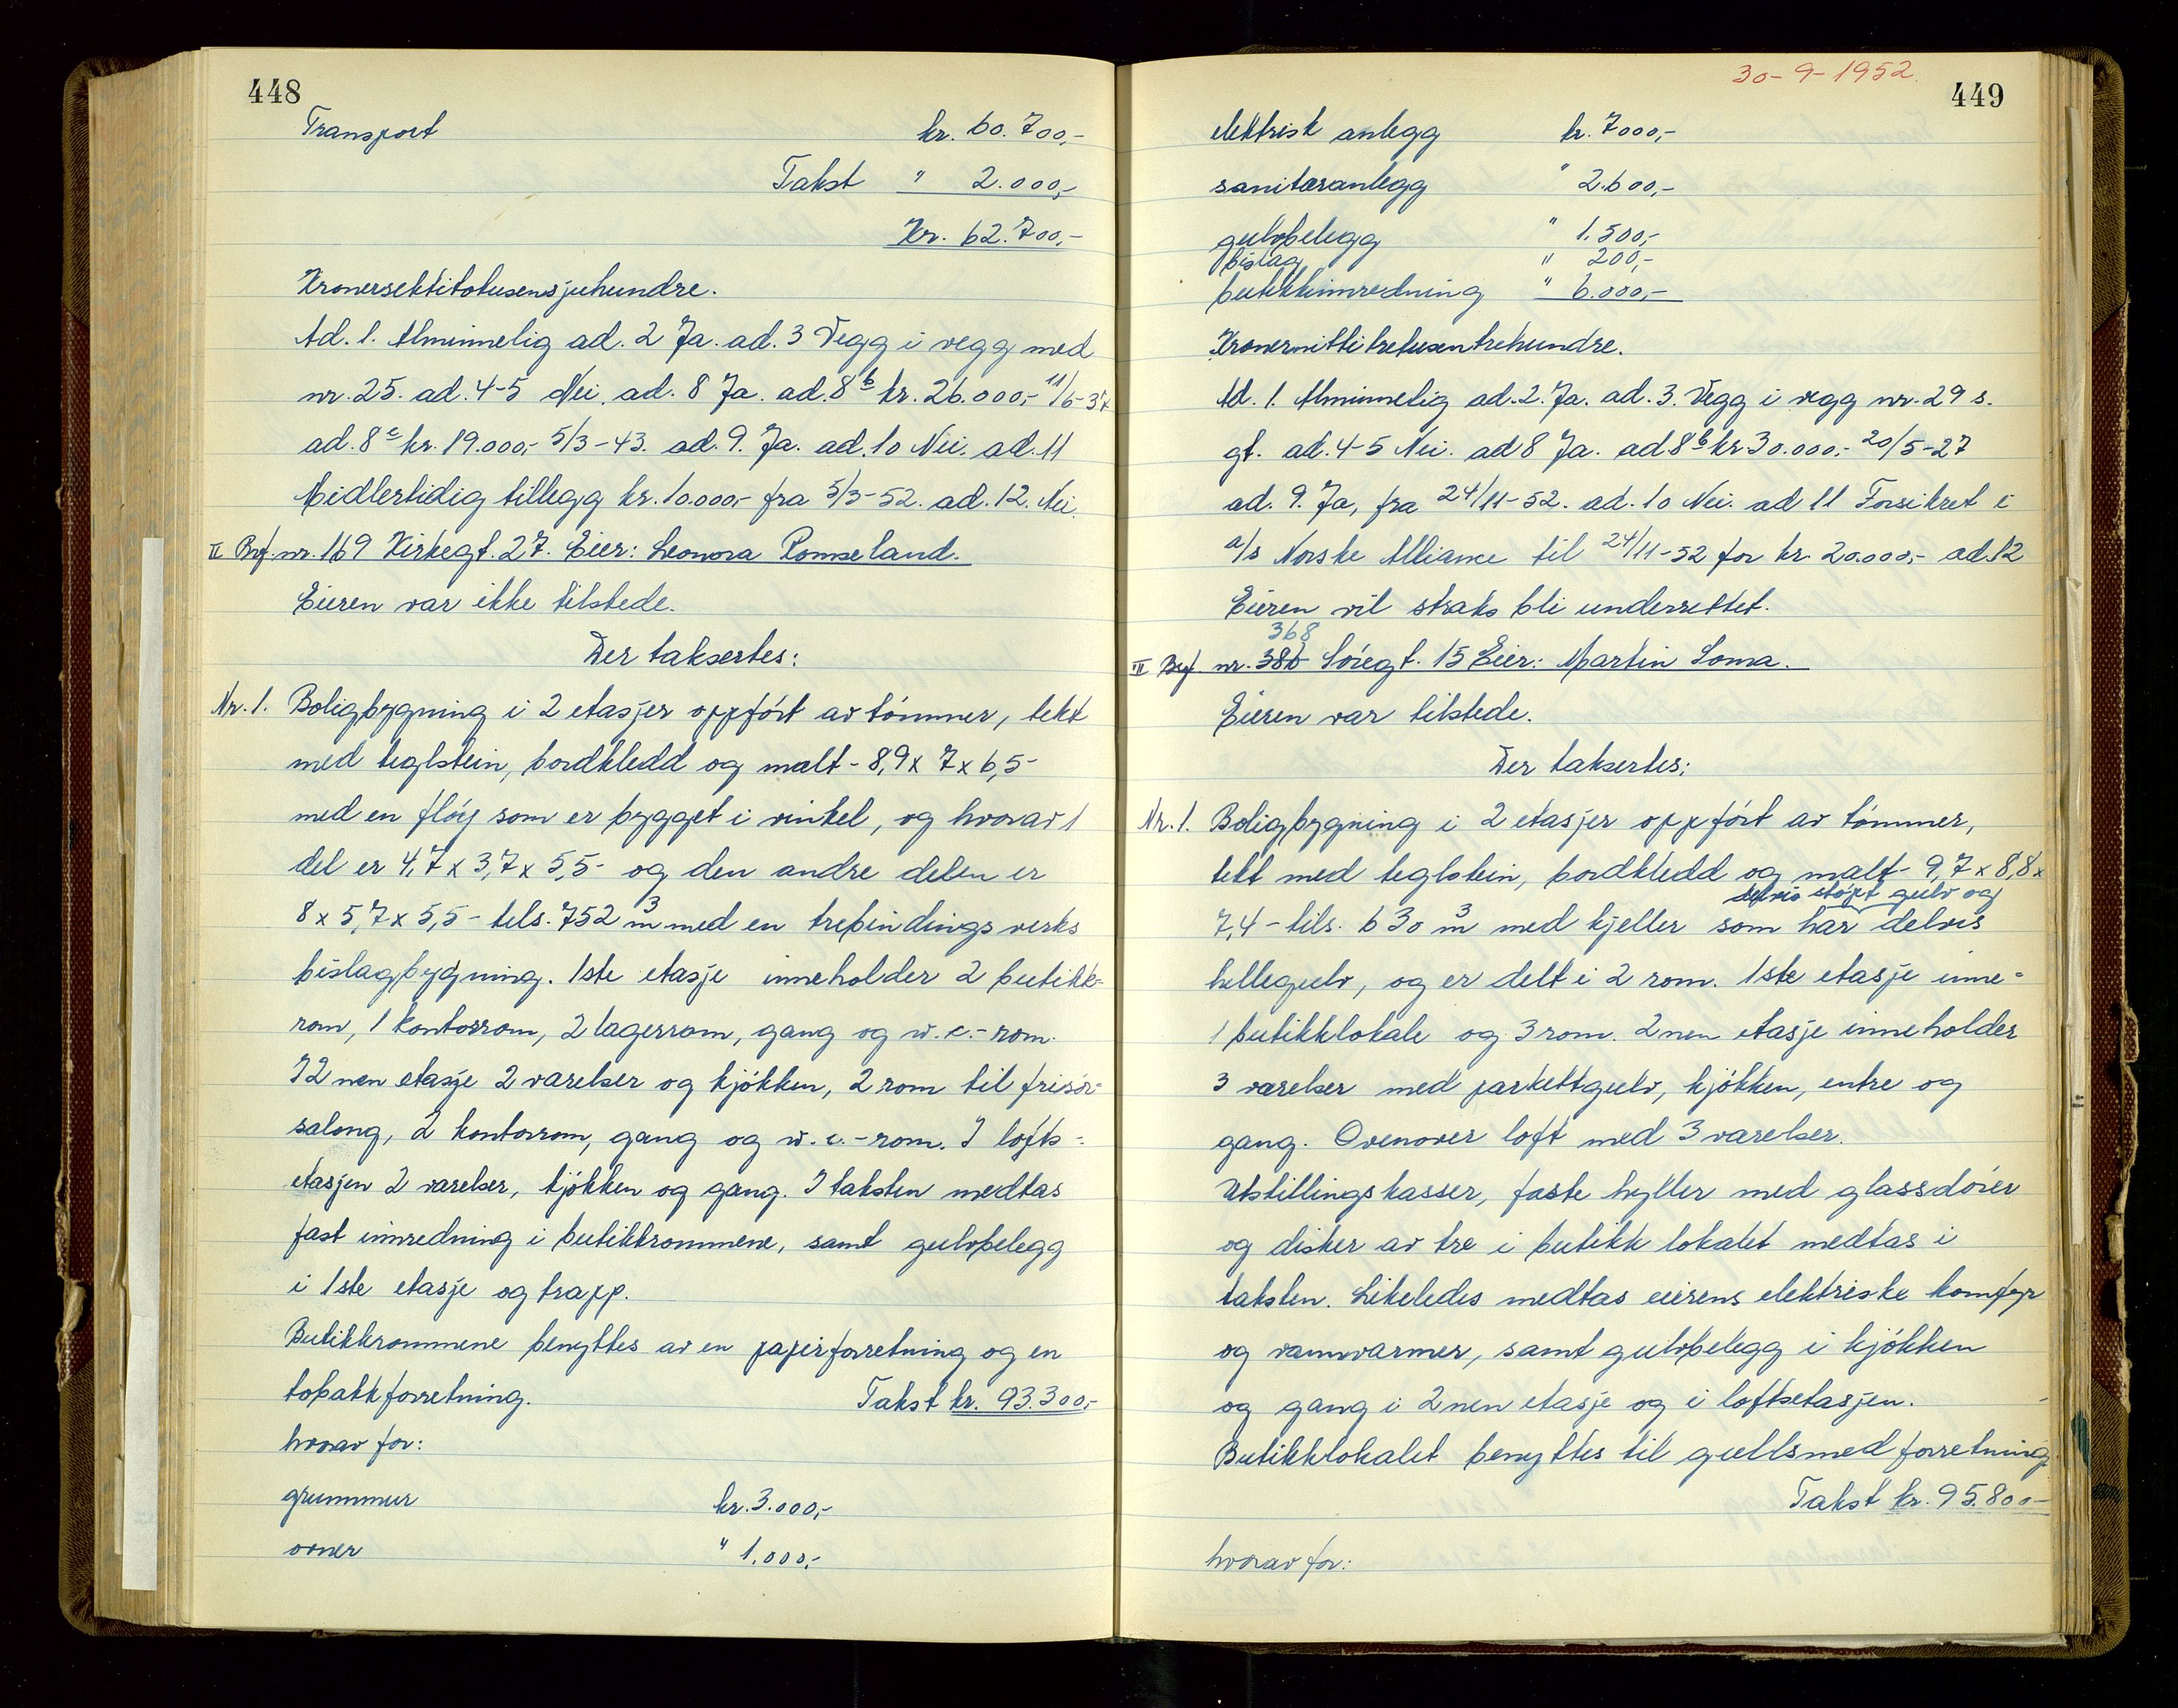 448
Transport kr. 60.700,-
Takst " 2.000,-
Kr. 62.700,-
Kronersektitotusensjuhundre.
Ad. 1. Alminnelig ad. 2 Ja. ad. 3 Vegg i vegg med
nr. 25. ad. 4-5 Nei. ad. 8 Ja. ad. 8b kr. 26.000,- 11/6-37
ad. 8c kr. 19.000,- 5/3-43. ad. 9. Ja. ad. 10 Nei. ad. 11
Midlertidig tillegg kr. 10.000,- fra 5/3-52. ad. 12. Nei.
II Brf. nr. 169 Kirkegt. 27. Eier: Leonora Pomseland.
Eieren var ikke tilstede.
Der taksertes:
Nr. 1. Boligbygning i 2 etasjer oppfört av tömmer, tekt
med teglstein, bordkledd og malt - 8,9 x 7 x 6,5 -
med en flöy som er bygget i vinkel, og hvorav 1
del er 4,7 x 3,7 x 5,5 - og den andre delen er
8 x 5,7 x 5,5 - tils. 752 m3 med en trebindingsverks
bislagbygning. 1ste etasje inneholder 2 butikk-
rom, 1 kontorrom, 2 lagerrom, gang og w.c.-rom.
I 2nen etasje 2 værelser og kjökken, 2 rom til frisör-
salong, 2 kontorrom, gang og w.c.-rom. I lofts-
etasjen 2 værelser, kjökken og gang. I taksten medtas
fast innredning i butikkrommene, samt gulvbelegg
i 1ste etasje og trapp.
Butikkrommene benyttes av en papirforretning og en
tobakkforretning. Takst kr. 93.300,-
hvorav for:
grunnmur kr. 3.000,-
ovner " 1.000,-
30-9-1952.
449
elektrisk anlegg kr. 7000,-
sanitæranlegg " 2.600,-
gulvbelegg " 1.500,-
bislag " 200,-
butikkinnredning " 6.000,-
Kronernittitretusentrehundre.
Ad. 1. Alminnelig ad. 2. Ja. ad. 3. Vegg i vegg nr. 29 s.
gt. ad. 4-5 Nei. ad 8 Ja. ad 8b kr 30.000,- 20/5-27
ad. 9. Ja, fra 24/11-52. ad. 10 Nei. ad 11 Forsikret i
a/s Norske Alliance til 24/11-52 for kr. 20.000,- ad. 12
Eieren vil straks bli underrettet.
368
III Brf. nr. 386 Söregt. 15 Eier: Martin Soma.
Eieren var tilstede.
Der taksertes:
Nr. 1. Boligbygning i 2 etasjer oppfört av tömmer,
tekt med teglstein, bordkledd og malt - 9,7 x 8,8 x
delvis stöpt gulv og
7,4 - tils. 630 m3 med kjeller som har delvis
hellegulv, og er delt i 2 rom. 1ste etasje inne-
1 butikklokale og 3 rom. 2nen etasje inneholder
3 værelser med parkettgulv, kjökken, entre og
gang. Ovenover loft med 3 værelser.
Utstillingskasser, faste hyller med glassdörer
og disker av tre i butikk lokalet medtas i
taksten. Likeledes medtas eierens elektriske komfyr
og vannvarmer, samt gulvbelegg i kjökken
og gang i 2nen etasje og i loftsetasjen.
Butikklokalet benyttes til gullsmedforretning.
Takst kr. 95.800-
hvorav for: